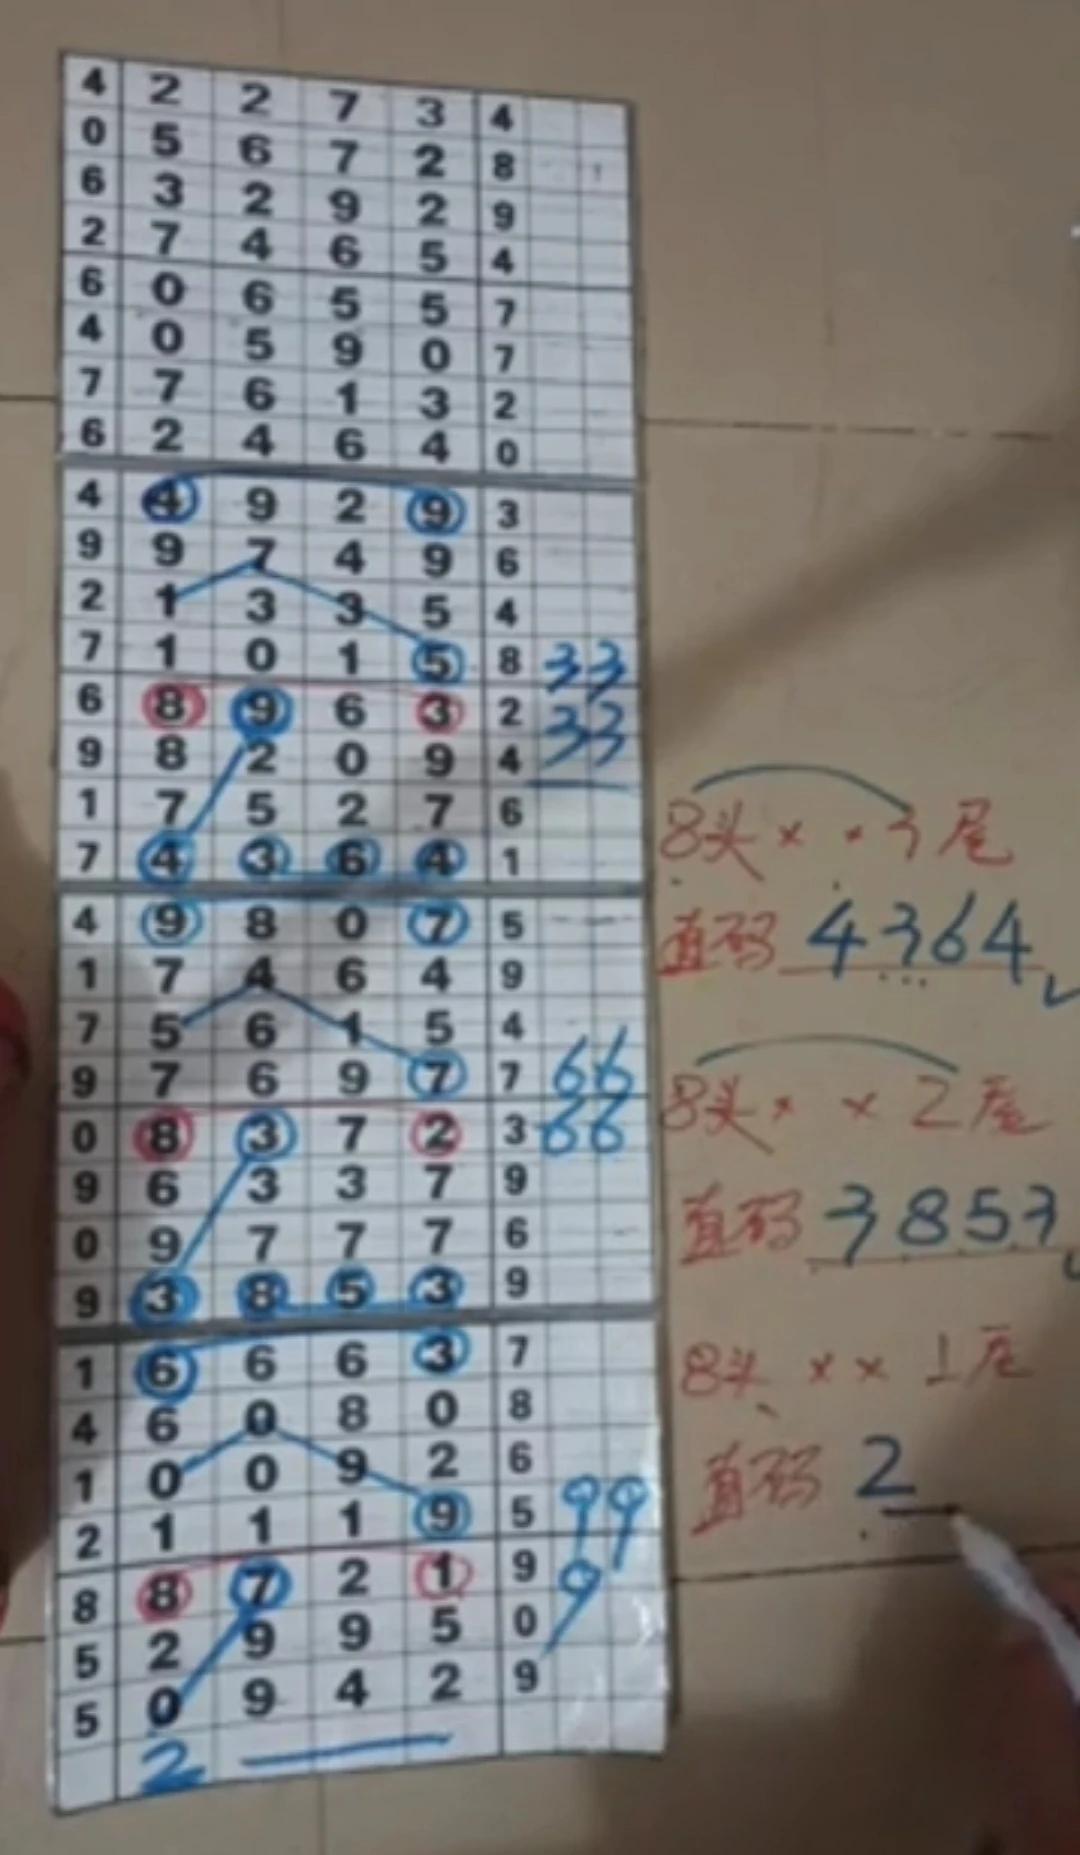 4 2 2 7 3 4
0 5 6 7 2 8
6 3 2 9 2 9
2 7 4 6 5 4
6 0 6 5 5 7
4 0 5 9 0 7
7 7 6 1 3 2
6 2 4 6 4 0
4 4 9 2 9 3
9 9 7 4 9 6
2 1 3 3 5 4
7 1 0 1 5 8 33
6 8 9 6 3 2 33
9 8 2 0 9 4
1 7 5 2 7 6
7 4 3 6 4 1
4 9 8 0 7 5
1 7 4 6 4 9
7 5 6 1 5 4
9 7 6 9 7 7 66
0 8 3 7 2 3 66
9 6 3 3 7 9
0 9 7 7 7 6
9 3 8 5 3 9
1 6 6 6 3 7
4 6 0 8 0 8
1 0 0 9 2 6
2 1 1 1 9 5 99
8 8 7 2 1 9 9
5 2 9 9 5 0
5 0 9 4 2 9
2
8头××3尾
直码 4364
8头××2尾
直码 3853
8头××1尾
直码 2